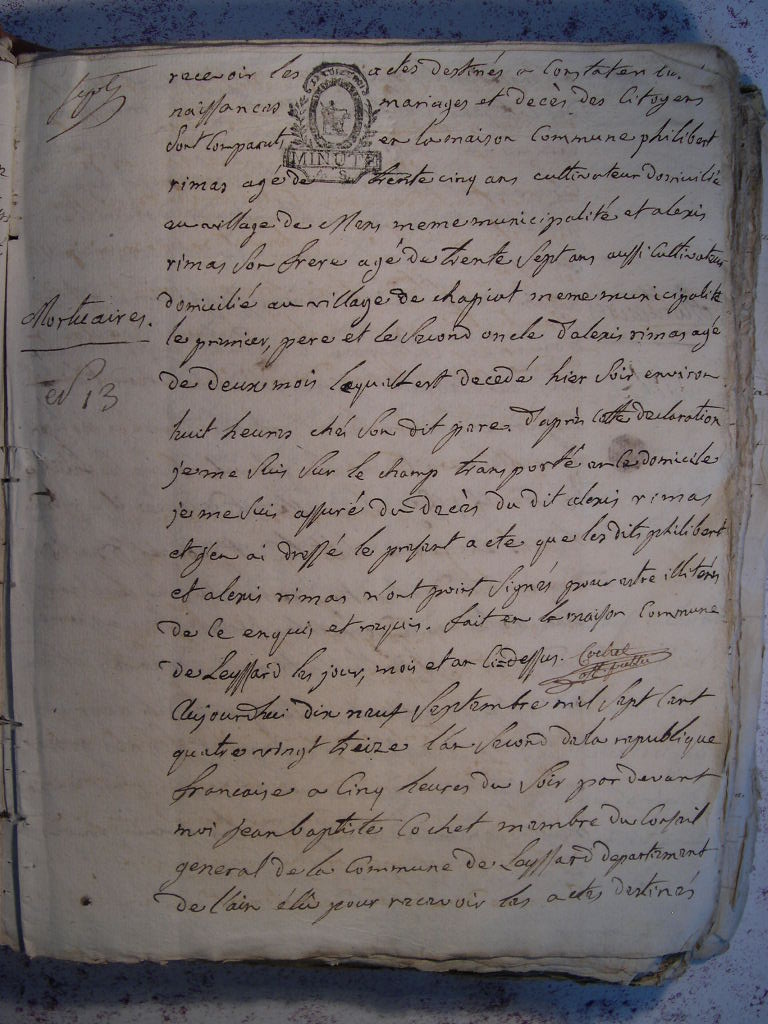 sept
recevoir les actes destinés a Constater les
naissances mariages et decès des Citoyens
sont comparuts en la maison Commune philibert
MINUTE
rimas agé de trente cinq ans cultivateur domicilié
au village de mens meme municipalité et alexis
rimas son frere agé de trente sept ans aussi cultivateur
Mortuaires.
domicilié au village de chapiat meme municipalité
le premier, pere et le second oncle d'alexis rimas agé
N° 13
de deux mois lequel est decedé hier soir environ
huit heures chés son dit pere. d'après cette declaration
je me suis sur le champ transporté en le domicile
je me suis assuré du decès du dit alexis rimas
et j'en ai dressé le present acte que les dits philibert
et alexis rimas n'ont point signés pour etre illiterés
de ce enquis et requis. fait en la maison Commune
de Leyssard les jour, mois et an ci=dessus. Cochet
Aujourdhui dix neuf septembre mil sept cent
quatre vingt treize l'an second de la republique
francaise a cinq heures du soir par devant
moi jean baptiste Cochet membre du Conseil
general de la Commune de Leyssard departement
de l'ain élû pour recevoir les actes destinés